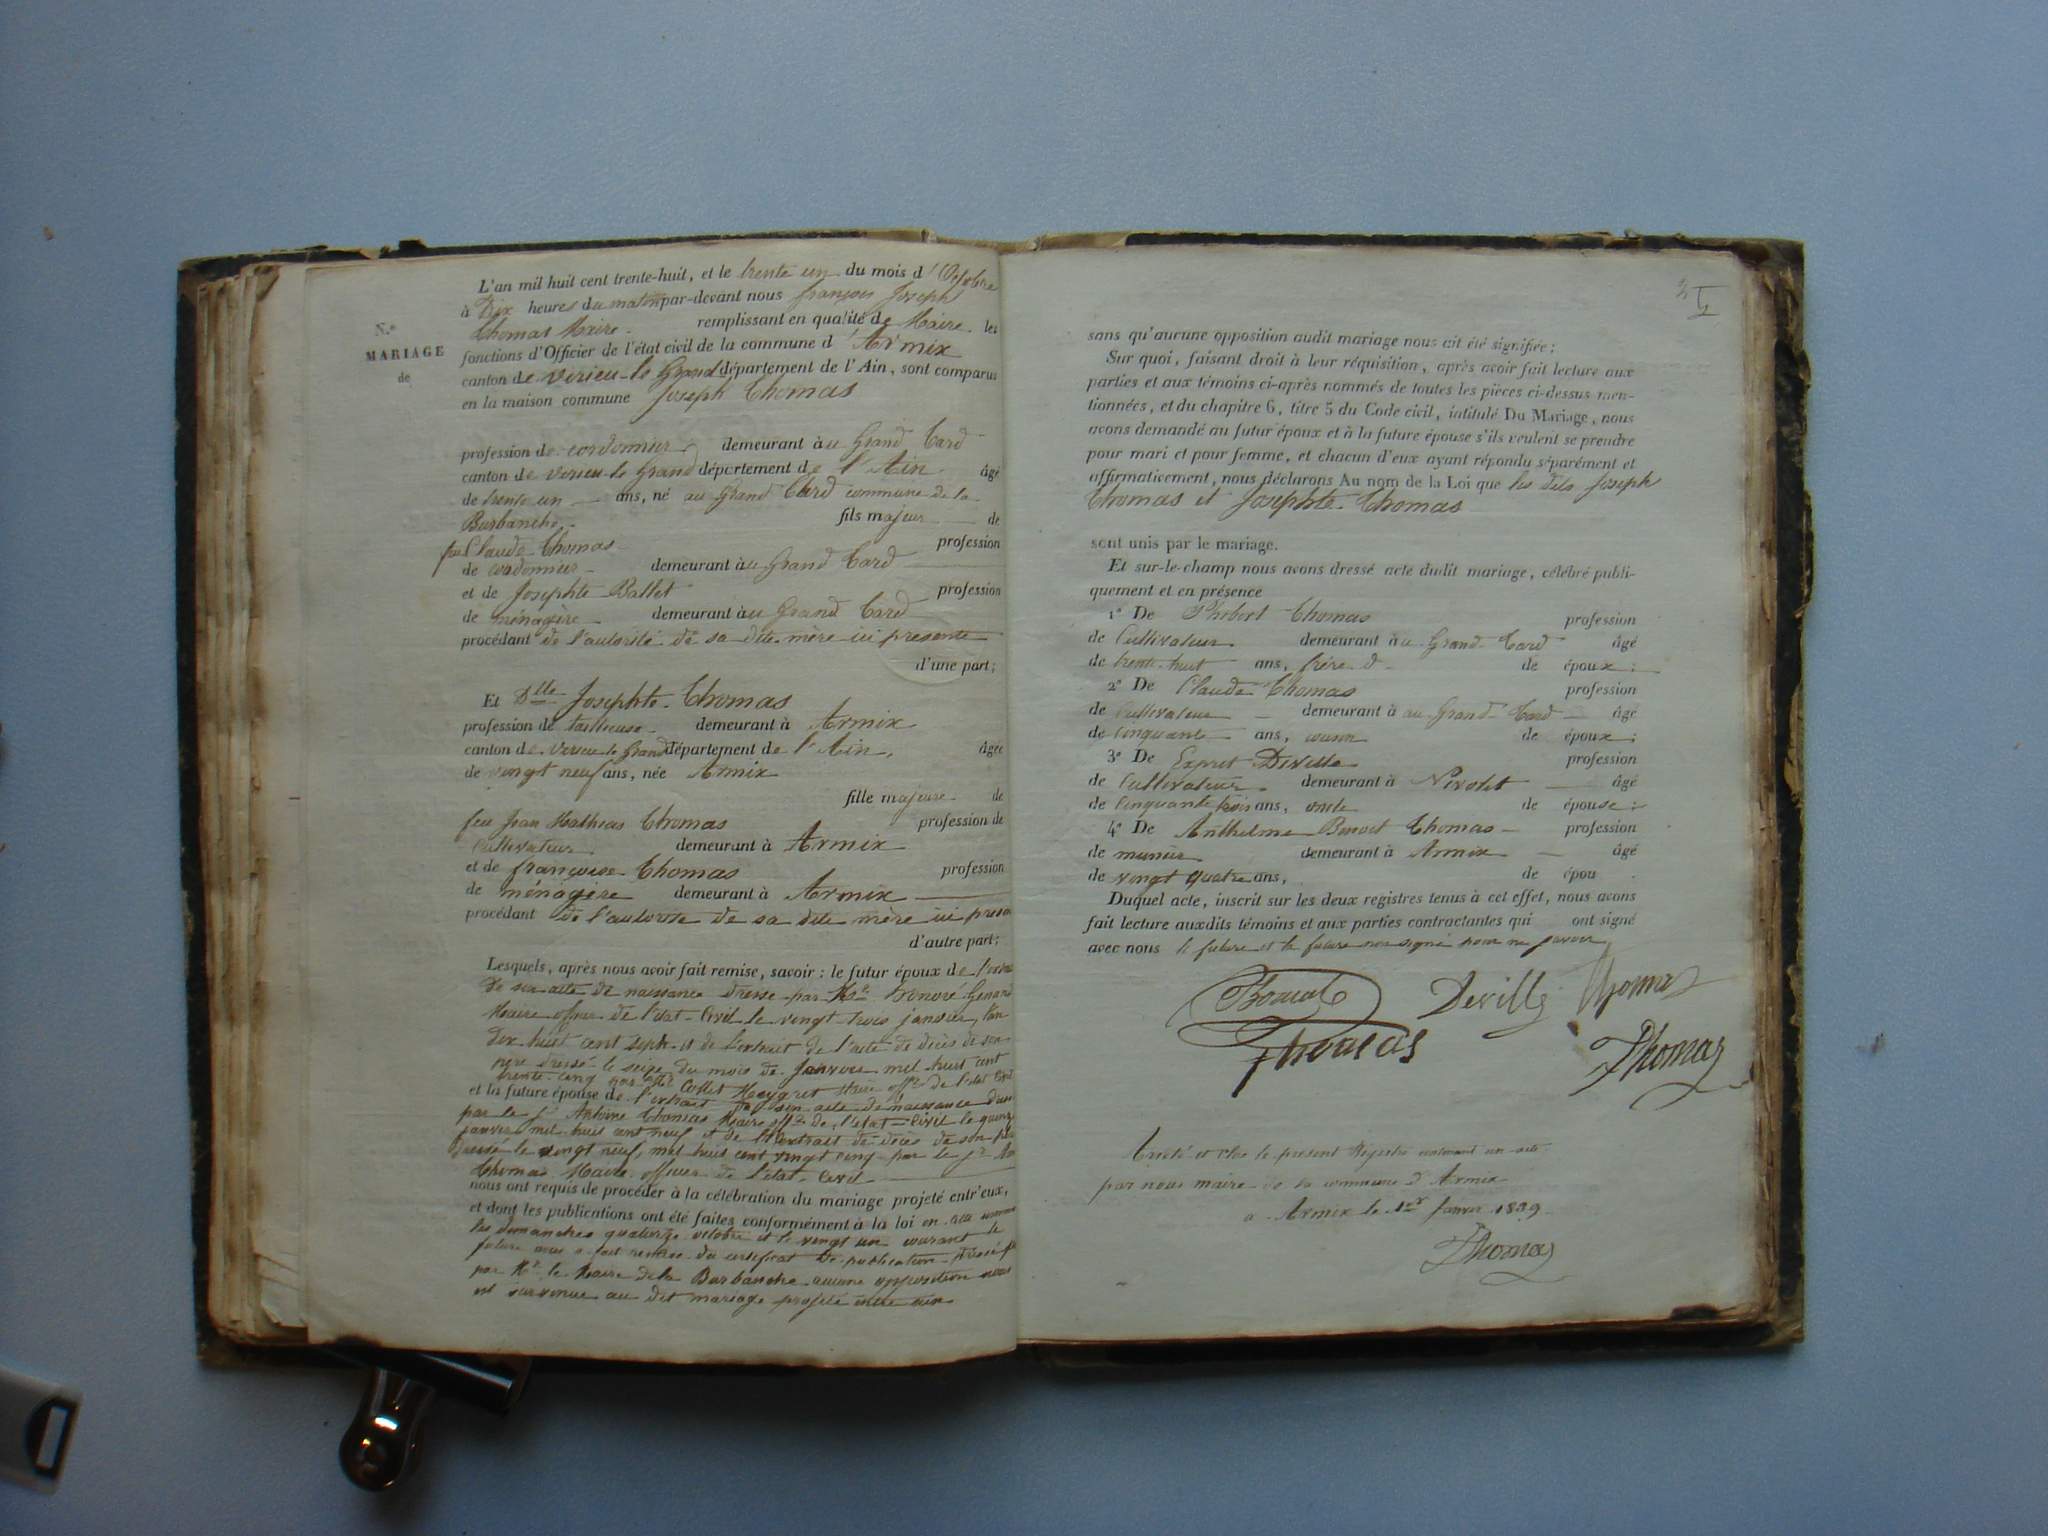 L'an mil huit cent trente-huit, et le trente un du mois d'Octobre
à Dix heures du matin par-devant nous françois Joseph
Thomas Maire remplissant en qualité de Maire les
N.º
MARIAGE
de
fonctions d'Officier de l'état civil de la commune d'Armix
canton de virieu-le Grand département de l'Ain, sont comparus
en la maison commune Joseph Thomas
profession de cordonnier demeurant à au Grand Card
canton de virieu-le Grand département de l'Ain âgé
de trente un ans, né au Grand Card commune de la
Burbanche fils majeur de
feu Claude Thomas profession
de cordonnier demeurant à au Grand Card
et de Josephte Ballet profession
de ménagère demeurant à au Grand Card
procédant de l'autorité de sa dite mère ici presente
d'une part;
Et Dlle Josephte Thomas
profession de tailleuse demeurant à Armix
canton de virieu le Grand département de l'Ain, âgée
de vingt neuf ans, née Armix
fille majeure de
feu Jean Mathieu Thomas profession de
Cultivateur demeurant à Armix
et de françoise Thomas profession
de ménagère demeurant à Armix
procédant de l'autorité de sa dite mère ici
d'autre part;
Lesquels, après nous avoir fait remise, savoir: le futur époux de
de son acte de naissance dressé par Mr honoré
Maire officier de l'état-Civil le vingt trois janvier, l'an
Dix huit cent sept et de l'extrait de l'acte de décès de son
pere dressé le seize du mois de Janvier mil huit cent
trente cinq par Mr Collet Meygret Maire offr de l'état Civil
et la future épouse de l'extrait de son acte de naissance
par le Sr Antoine Thomas Maire offr de l'état-Civil le quinze
janvier mil huit cent neuf et de l'extrait de décès de son père
Dressé le vingt neuf, mil huit cent vingt cinq par le Sr
Thomas Maire officier de l'état-Civil
nous ont requis de procéder à la célébration du mariage projeté entr'eux,
et dont les publications ont été faites conformément à la loi en cette commune
les dimanches quatorze octobre et le vingt un courant le
future nous a fait remise du certificat de publication
par Mr le Maire de la Burbanche aucune opposition nous
est survenue au dit mariage projeté entre eux
sans qu'aucune opposition audit mariage nous ait été signifiée;
Sur quoi, faisant droit à leur réquisition, après avoir fait lecture aux
parties et aux témoins ci-après nommés de toutes les pièces ci-dessus men-
tionnées, et du chapitre 6, titre 5 du Code civil, intitulé Du Mariage, nous
avons demandé au futur époux et à la future épouse s'ils veulent se prendre
pour mari et pour femme, et chacun d'eux ayant répondu séparément et
affirmativement, nous déclarons Au nom de la Loi que les dits Joseph
Thomas et Josephte Thomas
sont unis par le mariage.
Et sur-le-champ nous avons dressé acte dudit mariage, célébré publi-
quement et en présence
1º De Phibert Thomas profession
de Cultivateur demeurant à au Grand Card âgé
de trente huit ans, frère d de époux;
2º De Claude Thomas profession
de Cultivateur demeurant à au Grand Card âgé
de Cinquante ans, cousin de époux;
3º De Exprit Deville profession
de Cultivateur demeurant à Nivolet âgé
de Cinquante trois ans, oncle de épouse;
4º De Anthelme Benoit Thomas profession
de munier demeurant à Armix âgé
de vingt quatre ans, de épou
Duquel acte, inscrit sur les deux registres tenus à cet effet, nous avons
fait lecture auxdits témoins et aux parties contractantes qui ont signé
avec nous le future et la future non signé pour ne savoir
Deville Thomas
Thomas Thomas
Arrêté et Clos le present Registre contenant un acte
par nous maire de la commune d'Armix
a Armix le 1er Janvier 1839
Thomas